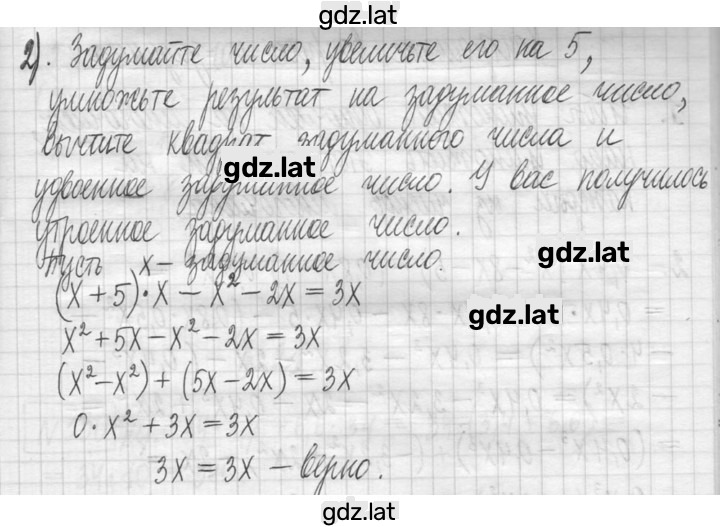 gdz.lat
2). Задумайте число, увеличьте его на 5,
умножьте результат на задуманное число,
вычтите квадрат задуманного числа и
gdz.lat
удвоенное задуманное число. У вас получилось
утроенное задуманное число.
gdz.lat
Пусть x — задуманное число.
(x + 5) · x − x² − 2x = 3x
gdz.lat
x² + 5x − x² − 2x = 3x
(x² − x²) + (5x − 2x) = 3x
0 · x² + 3x = 3x
3x = 3x — верно.
gdz.lat